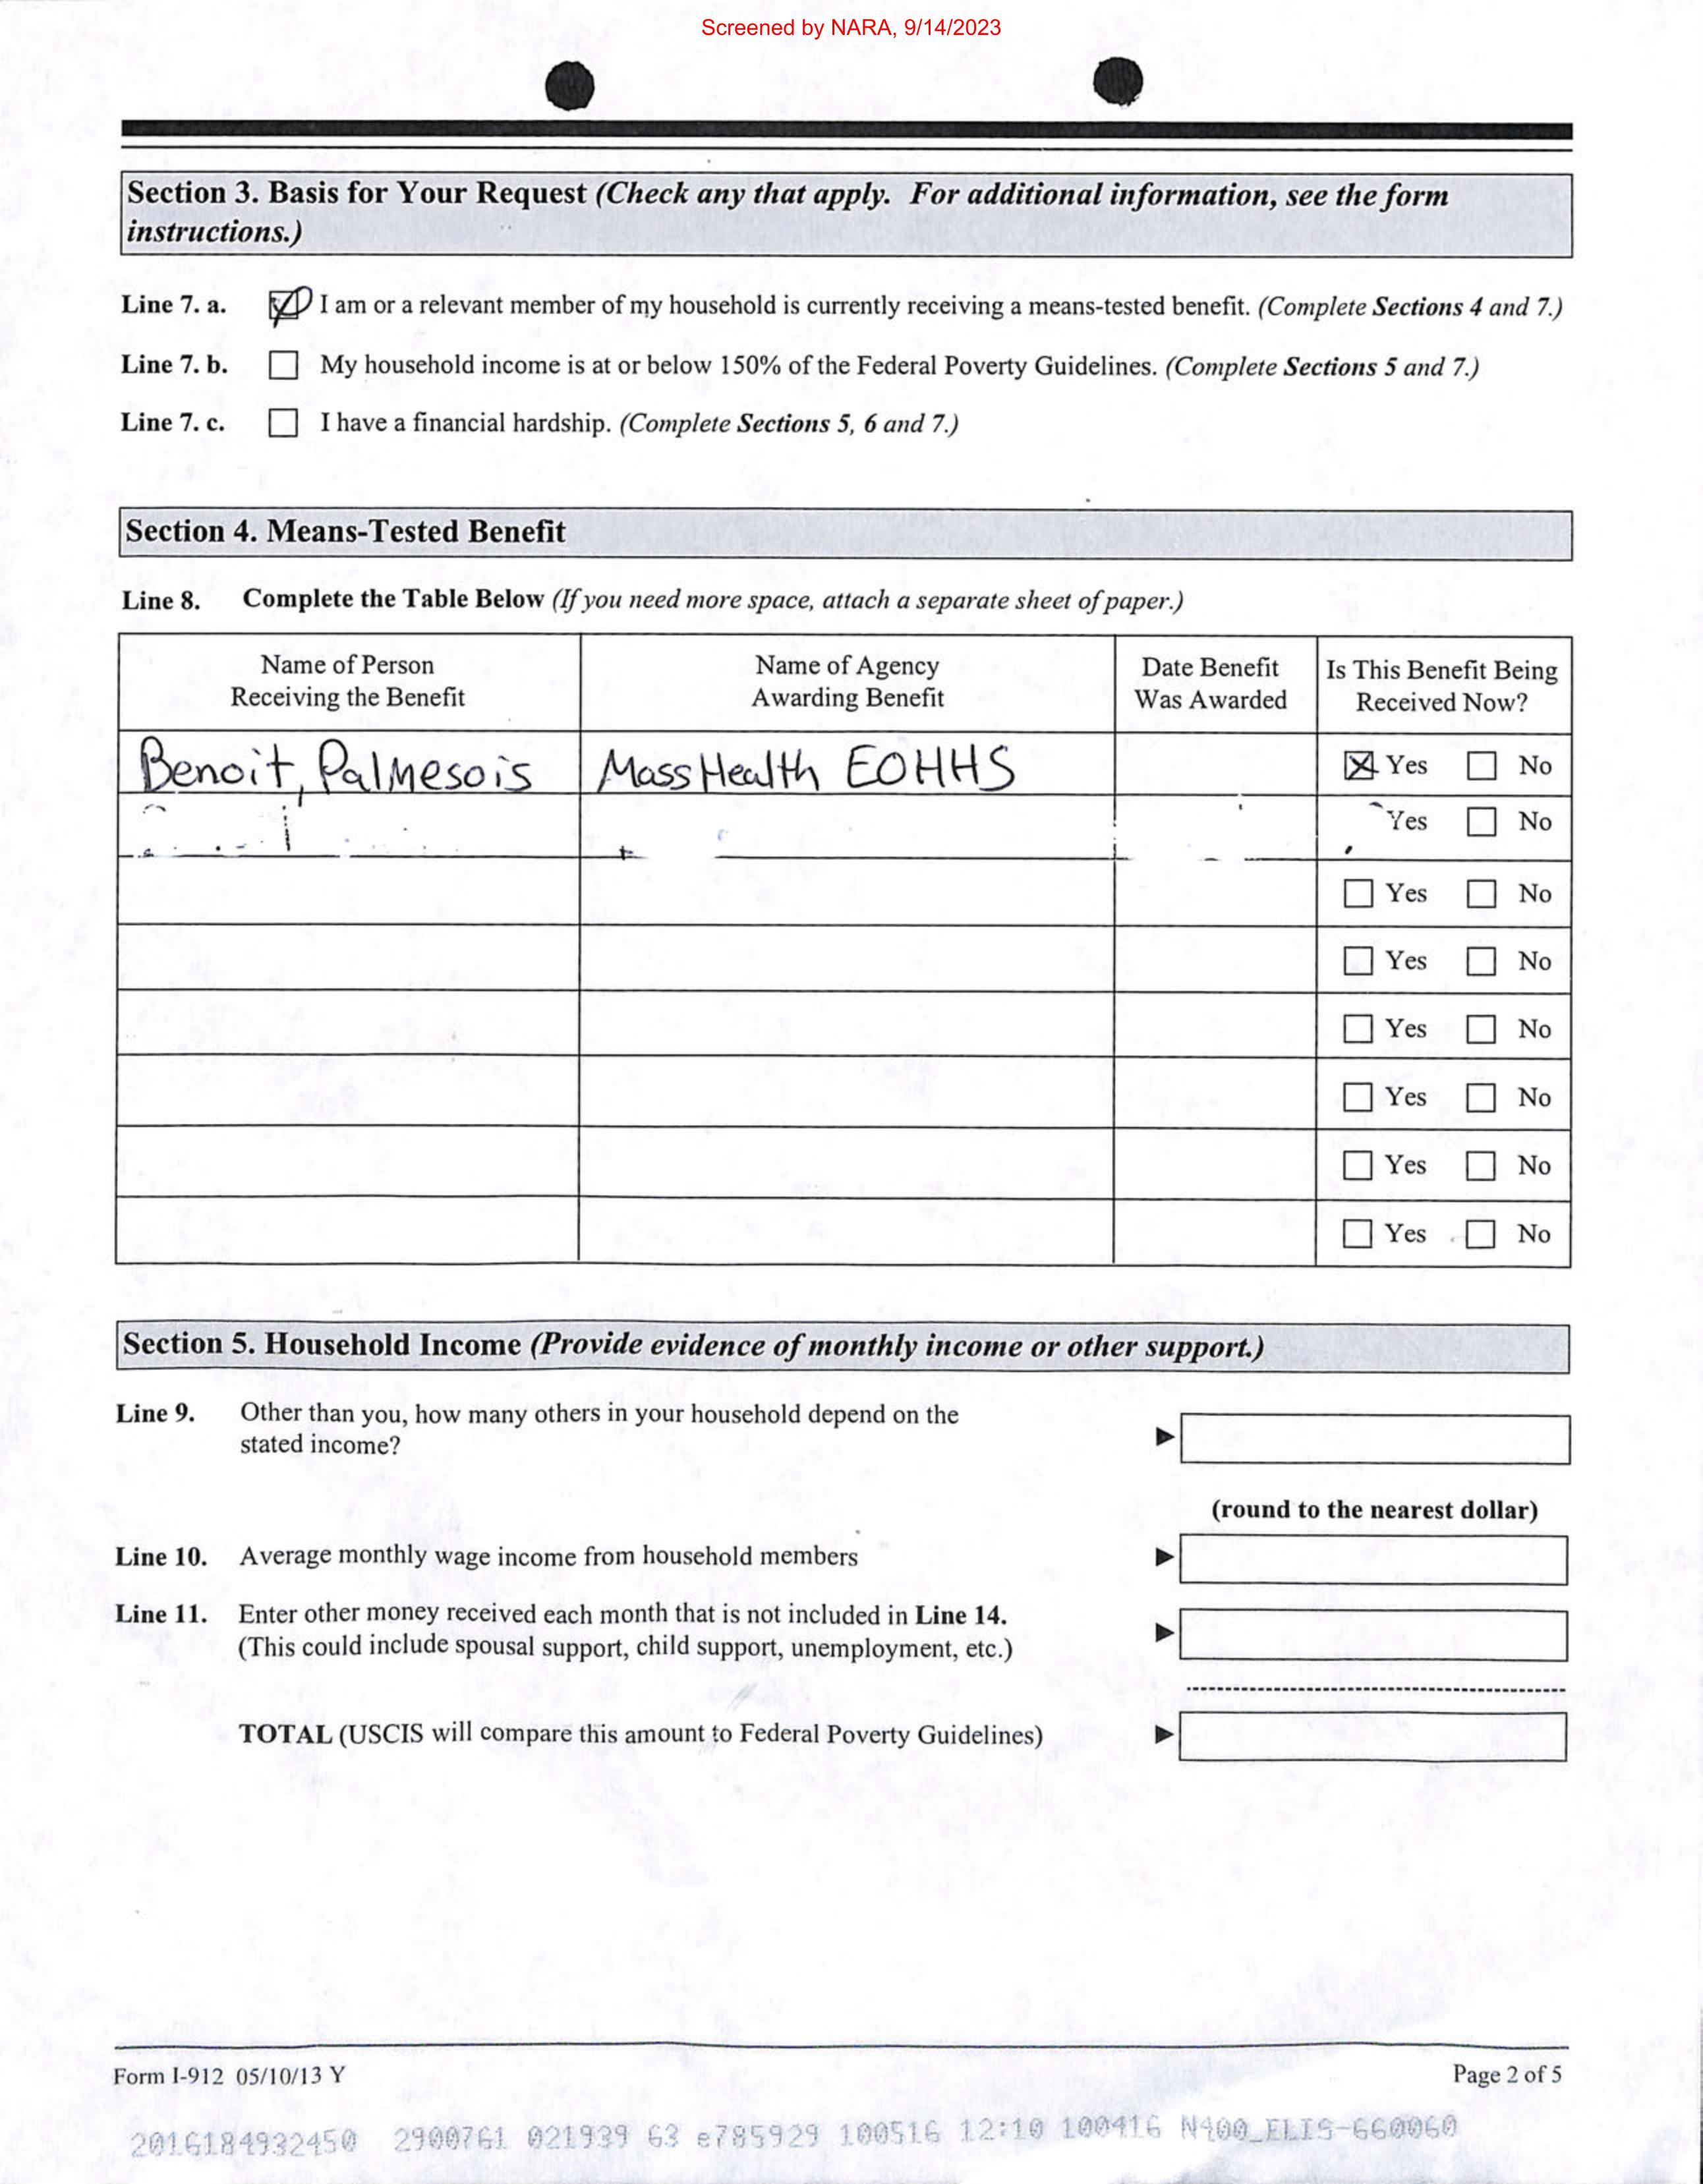 Screened by NARA, 9/14/2023
Section 3. Basis for Your Request (Check any that apply. For additional information, see the form
instructions.)
Line 7. a. I am or a relevant member of my household is currently receiving a means-tested benefit. (Complete Sections 4 and 7.)
Line 7. b. My household income is at or below 150% of the Federal Poverty Guidelines. (Complete Sections 5 and 7.)
Line 7. c. I have a financial hardship. (Complete Sections 5, 6 and 7.)
Section 4. Means-Tested Benefit
Line 8. Complete the Table Below (If you need more space, attach a separate sheet of paper.)
Name of Person Name of Agency Date Benefit Is This Benefit Being
Receiving the Benefit Awarding Benefit Was Awarded Received Now?
Benoit, Palmesois MassHealth EOHHS Yes No
Yes No
Yes No
Yes No
Yes No
Yes No
Yes No
Yes No
Section 5. Household Income (Provide evidence of monthly income or other support.)
Line 9. Other than you, how many others in your household depend on the
stated income?
(round to the nearest dollar)
Line 10. Average monthly wage income from household members
Line 11. Enter other money received each month that is not included in Line 14.
(This could include spousal support, child support, unemployment, etc.)
TOTAL (USCIS will compare this amount to Federal Poverty Guidelines)
Form I-912 05/10/13 Y Page 2 of 5
2016184932450 2900761 021939 63 e785929 100516 12:10 100416 N400_ELIS-660060